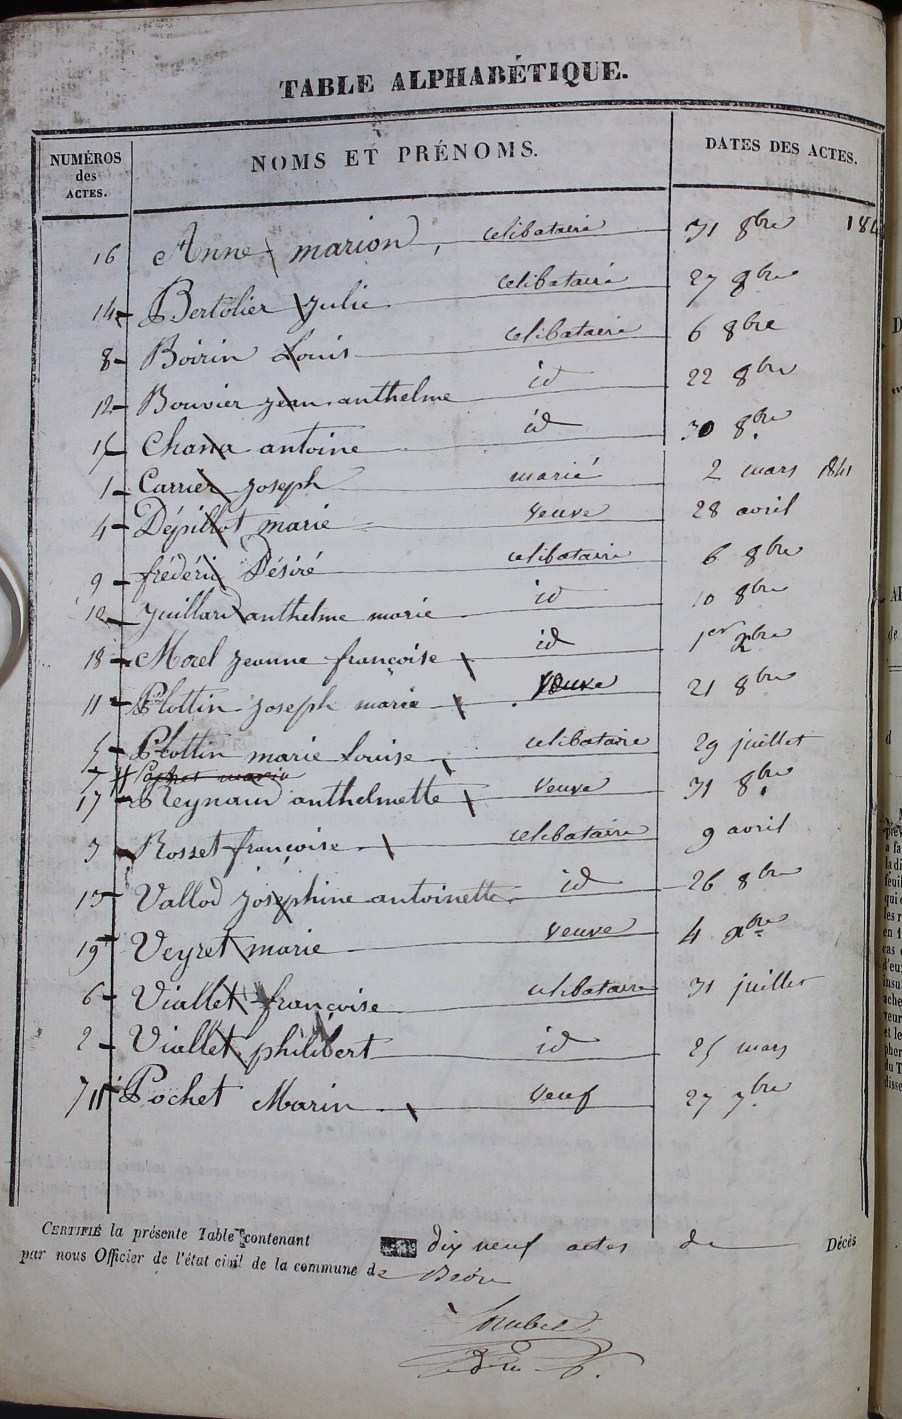 TABLE ALPHABÉTIQUE.
NUMÉROS des ACTES. NOMS ET PRÉNOMS. DATES DES ACTES.
16 Anne marion, celibataire 31 8bre 184
14 Bertolier Julie celibataire 27 8bre
8 Boirin Louis celibataire 6 8bre
12 Bouvier jean anthelme id 22 8bre
15 Chana antoine id 30 8bre
1 Carrier joseph marié 2 mars 1841
4 Dépillot marie veuve 28 avril
9 frédéric Désiré celibataire 6 8bre
10 Juillard anthelme marie id 10 8bre
18 Morel jeanne françoise id 1er Xbre
11 Plottin joseph marie veuve 21 8bre
5 Plottin marie Louise celibataire 29 juillet
7 Pochet marin
17 Reynaud anthelmette veuve 31 8bre
3 Rosset françoise celibataire 9 avril
13 Vallod josephine antoinette id 26 8bre
19 Veyret marie veuve 4 Xbre
6 Viallet françoise celibataire 31 juillet
2 Viallet philibert id 25 mars
7 Pochet Marin veuf 27 7bre
CERTIFIÉ la présente Table contenant dix neuf actes de Décès
par nous Officier de l'état civil de la commune de Béon